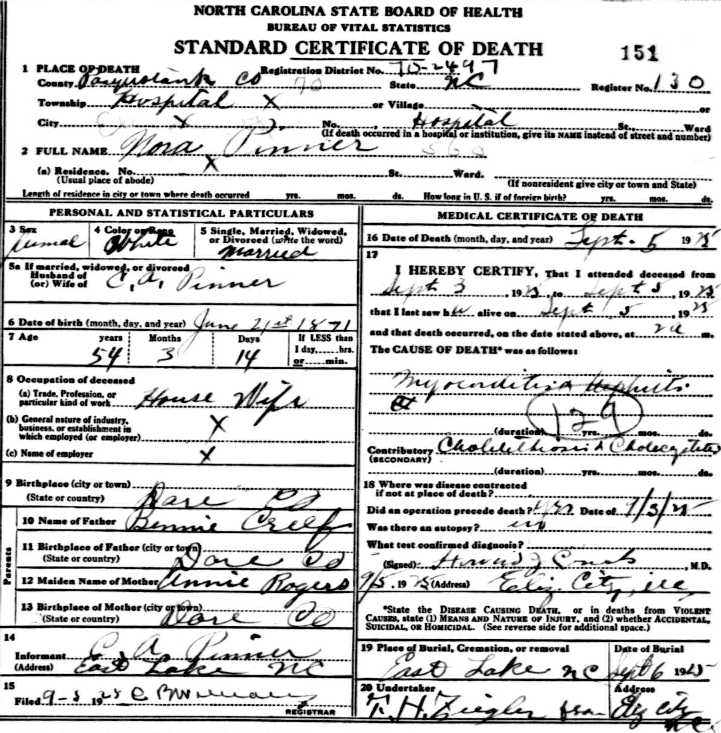 NORTH CAROLINA STATE BOARD OF HEALTH
BUREAU OF VITAL STATISTICS
STANDARD CERTIFICATE OF DEATH
151
1 PLACE OF DEATH
Registration District No. 70-2497
County Pasquotank Co 70 State NC Register No. 130
Township Hospital X or Village or
City X No. Hospital St., Ward
(If death occurred in a hospital or institution, give its NAME instead of street and number)
2 FULL NAME Nora Pinner
(a) Residence. No. X St. Ward.
(Usual place of abode) (If nonresident give city or town and State)
Length of residence in city or town where death occurred yrs. mos. ds. How long in U. S. if of foreign birth? yrs. mos. ds.
PERSONAL AND STATISTICAL PARTICULARS
3 Sex 4 Color or Race 5 Single, Married, Widowed,
or Divorced (write the word)
White Married
5a If married, widowed, or divorced
Husband of
(or) Wife of C. A. Pinner
6 Date of birth (month, day, and year) June 21st 1871
7 Age years Months Days If LESS than
1 day,......hrs.
or......min.
54 3 14
8 Occupation of deceased
(a) Trade, Profession, or
particular kind of work House Wife
(b) General nature of industry,
business, or establishment in
which employed (or employer) X
(c) Name of employer X
9 Birthplace (city or town)
(State or country) Dare Co
Parents
10 Name of Father Bennie Creef
11 Birthplace of Father (city or town)
(State or country) Dare Co
12 Maiden Name of Mother Annie Rogers
13 Birthplace of Mother (city or town)
(State or country) Dare Co
14
Informant C. A. Pinner
(Address) East Lake NC
15
Filed 9-5 1925
REGISTRAR
MEDICAL CERTIFICATE OF DEATH
16 Date of Death (month, day, and year) Sept. 5 1925
17
I HEREBY CERTIFY, That I attended deceased from
Sept 3, 1925 to Sept 5, 1925
that I last saw h alive on Sept 5 1925
and that death occurred, on the date stated above, at m.
The CAUSE OF DEATH* was as follows:
129
(duration) yrs. mos. ds.
Contributory
(SECONDARY)
(duration) yrs. mos. ds.
18 Where was disease contracted
if not at place of death?
Did an operation precede death? yes Date of
Was there an autopsy? no
What test confirmed diagnosis?
(Signed) M.D.
9/5, 1925 (Address) Eliz City, NC
*State the DISEASE CAUSING DEATH, or in deaths from VIOLENT
CAUSES, state (1) MEANS AND NATURE OF INJURY, and (2) whether ACCIDENTAL,
SUICIDAL, OR HOMICIDAL. (See reverse side for additional space.)
19 Place of Burial, Cremation, or removal Date of Burial
East Lake NC Sept 6 1925
20 Undertaker Address
T. H. Ziegler Eliz city
NC